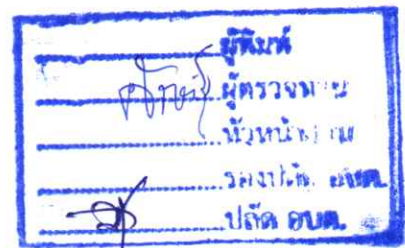 ผู้พิมพ์
ผู้ตรวจทาน
หัวหน้า
รองปลัด อบต.
ปลัด อบต.